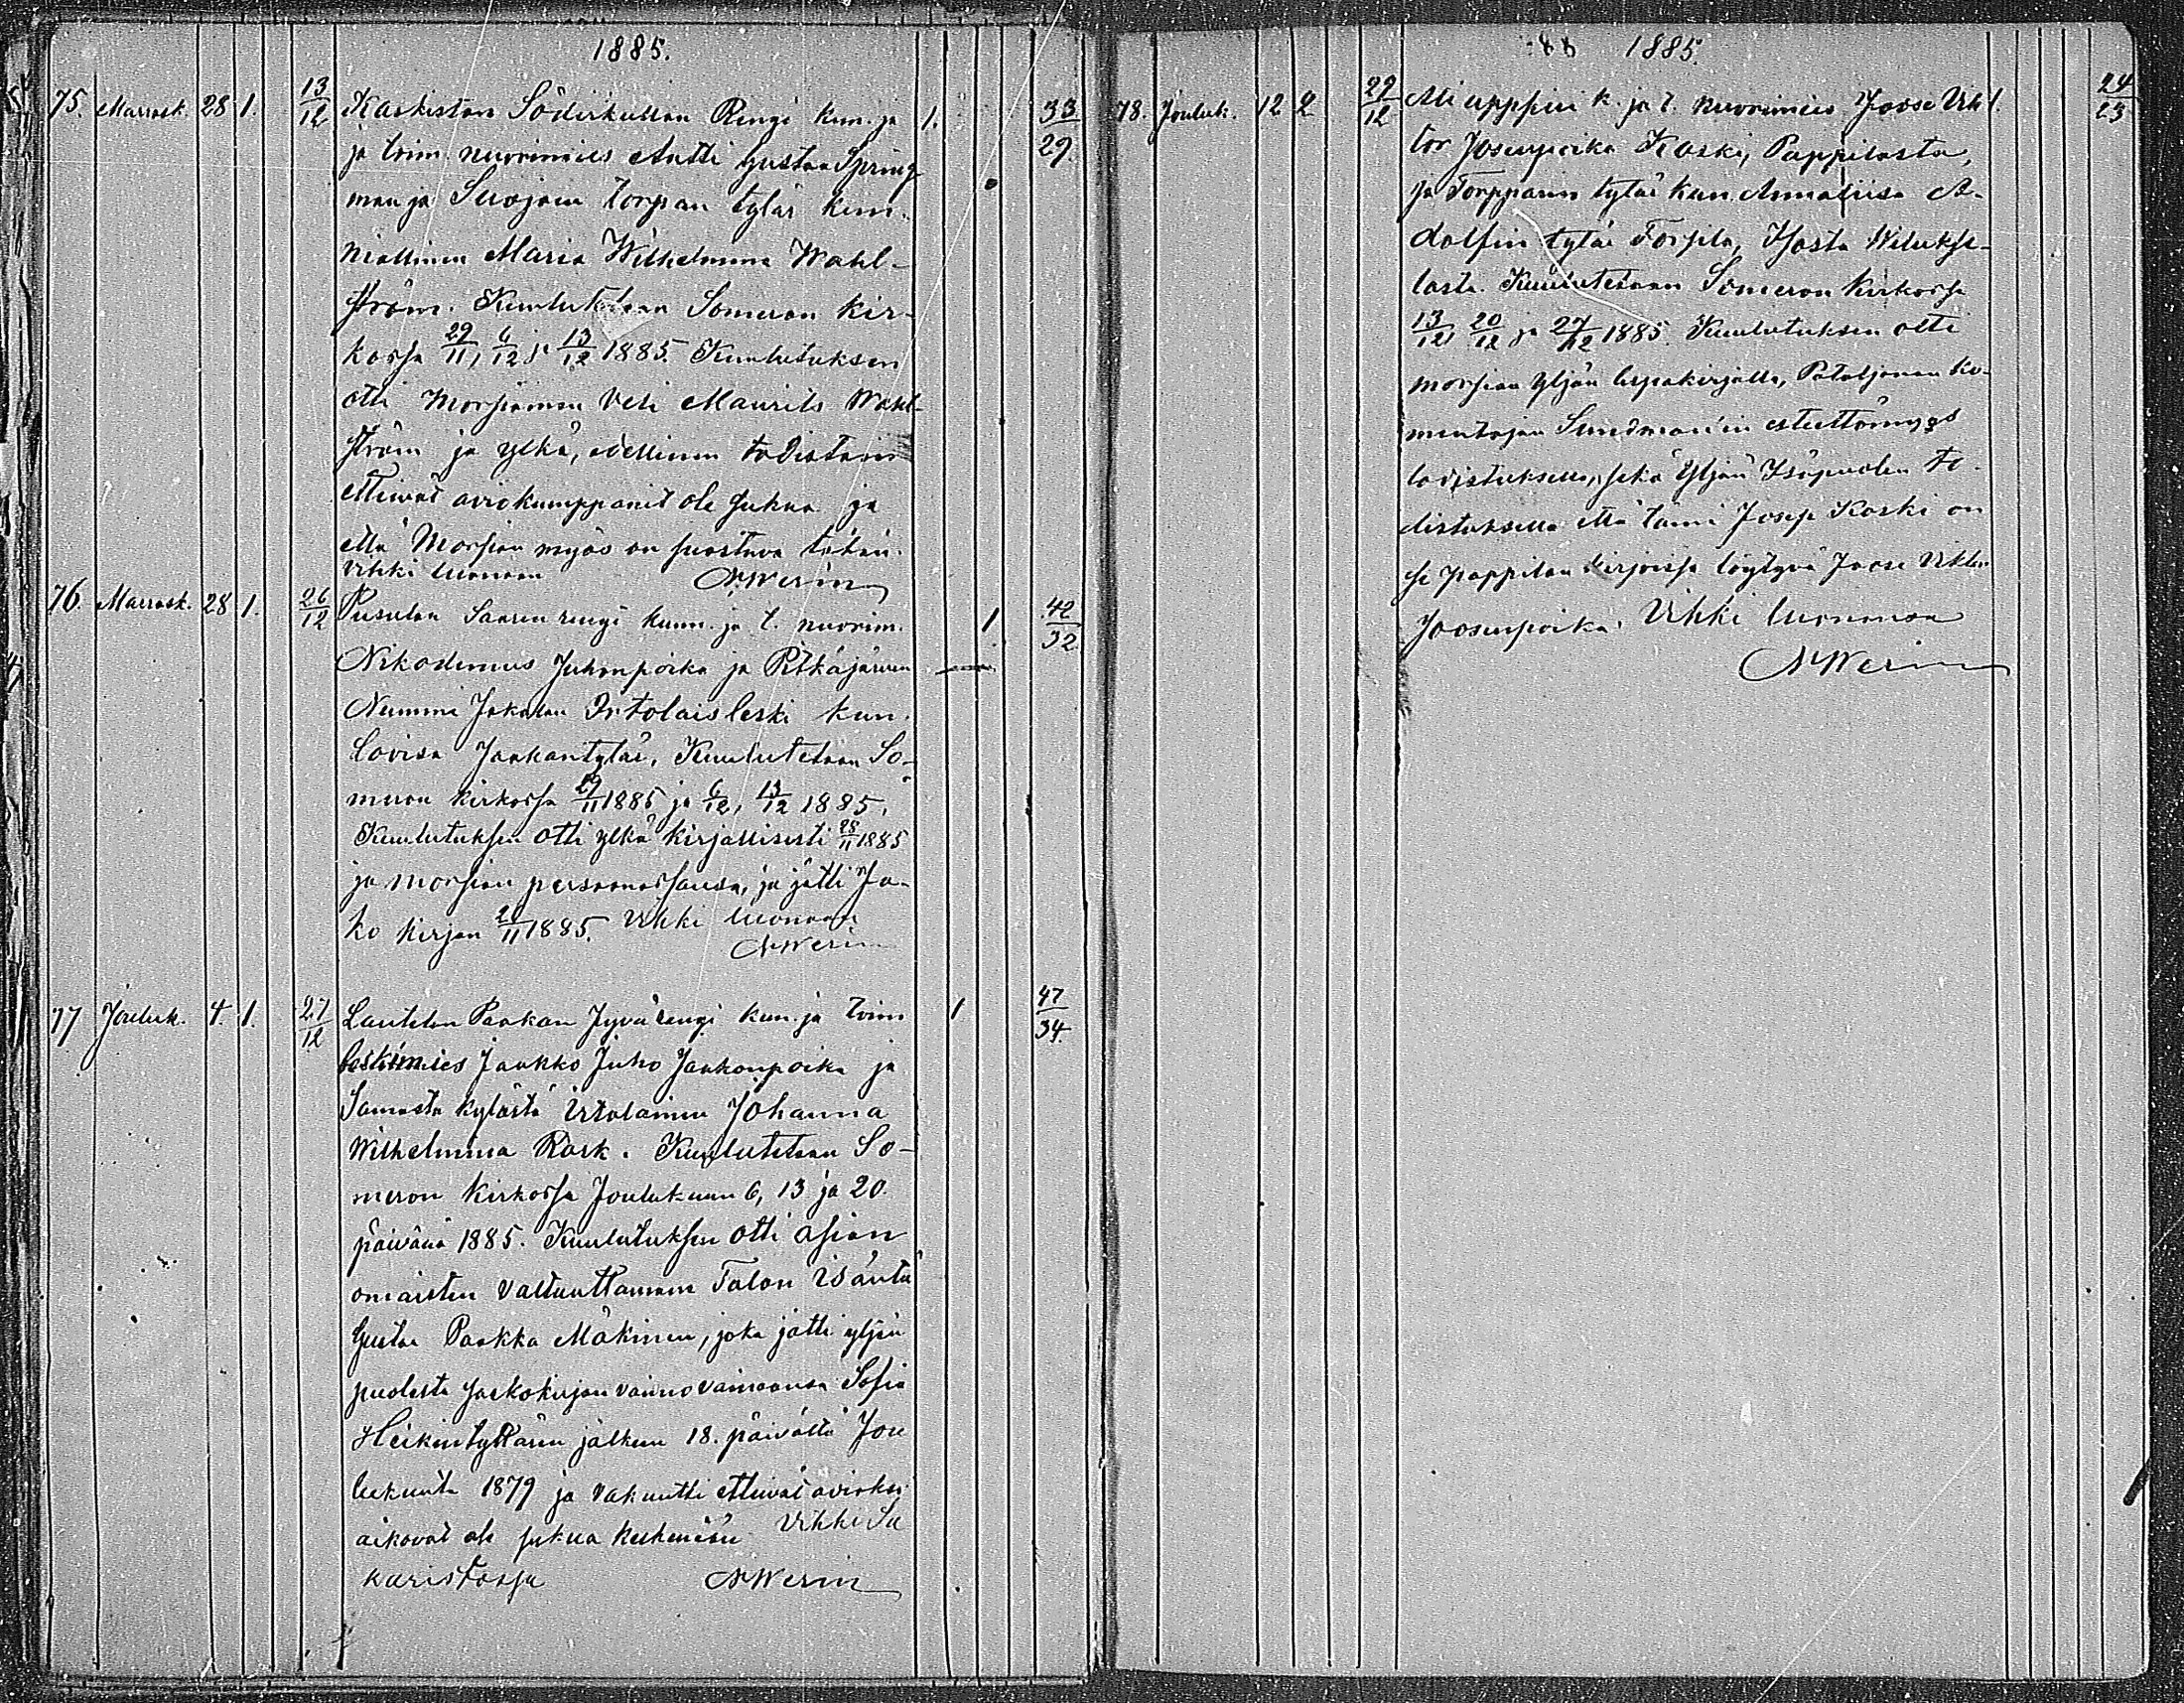 1885.
75. Marrask. 28 1. 13/12 Kaskiston Söderkullan Rengi kun. ja 1. 33/29.
ja toim. nuorimies Antti Gustaa Spring-
man ja Suojoen torpan tytär kun-
niallinen Maria Wilhelmina Wahl-
ström. Kuulutetaan Someron kir-
kossa 29/11, 6/12 j. 13/12 1885. Kuulutuksen
otti Morsiamen Veli Maurits Wahl-
ström ja ylkä, edellinen todistain
etteivät aviokumppanit ole sukua ja
että Morsian myös on suostuva tähän.
Vihki luonaan A. Werin
76. Marrask. 28 1. 26/12 Pusulan Saaren rengi kunn. ja t. nuorim. 1 42/32.
Nikodemus Juhonpoika ja Pitkäjärven
Nummi Jakolan Irtolaisleski kun.
Lovisa Jaakontytär, Kuulutetaan So-
meron kirkossa 29/11 1885 ja 6/12, 13/12 1885.
Kuulutuksen otti ylkä kirjallisesti 28/11 1885
ja morsian persoonassansa, ja jätti Ja-
ko kirjan 1885. Vihki luonaan
A Werin
77 Jouluk. 4. 1. 27/12 Lautelan Paakan Jyvä rengi kun. ja toim 1 47/34.
leskimies Jaakko Juho Jaakonpoika ja
Samasta kylästä Irtolainen Johanna
Wilhelmina Rask. Kuulutetaan So-
meron kirkossa Joulukuun 6, 13 ja 20.
päivänä 1885. Kuulutuksen otti asian
omaisten valtuuttamana Talon isäntä
Gustaa Paakka Mäkinen, joka jätti yljän
puolesta Jaekokirjan vaimo vainaansa Sofia
Heikintyttären jälkeen 18. päivältä Jou
lukuuta 1879 ja vakuutti etteivät avioksi
aikovat ole sukua keskenään Vihki Sa
karistossa A Werin
1885.
78. Jouluk. 12 2 27/12 k. ja t. nuorimies Joose Vik 1. 24/23
tor Josenpoika Koski, Pappilasta,
ja Torpparin tytär kun. Annaliisa A-
dolfin tytär Forsila, Wiluks-
lasta. Kuulutetaan Someron kirkossa
13/12, 20/12 ja 27/12 1885. Kuulutuksen otti
morsian yljän lupakirjalla, Pataljonan ko-
mentajan Sundman'in esteettömyys
todistuksella, sekä Yljän Isäpuolen to-
distuksella että tämä Josep Koski on
se Pappilan kirjoissa löytyvä Joose Viktor
Joosenpoika. Vihki luonansa
A Werin